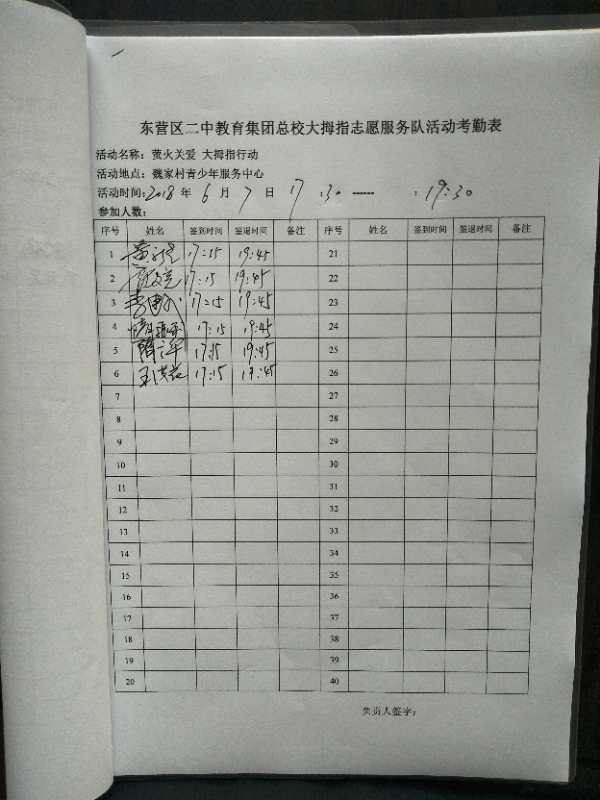 东营区二中教育集团总校大拇指志愿服务队活动考勤表
活动名称：萤火关爱 大拇指行动
活动地点：魏家村青少年服务中心
活动时间：2018 年 6 月 7 日 17 :30 ------ :19:30
参加人数：
序号 姓名 签到时间 签退时间 备注 序号 姓名 签到时间 签退时间 备注
1 17:15 19:45 21
2 17:15 19:45 22
3 17:15 19:45 23
4 17:15 19:45 24
5 17:15 19:45 25
6 17:15 19:45 26
7 27
8 28
9 29
10 30
11 31
12 32
13 33
14 34
15 35
16 36
17 37
18 38
19 39
20 40
负责人签字：